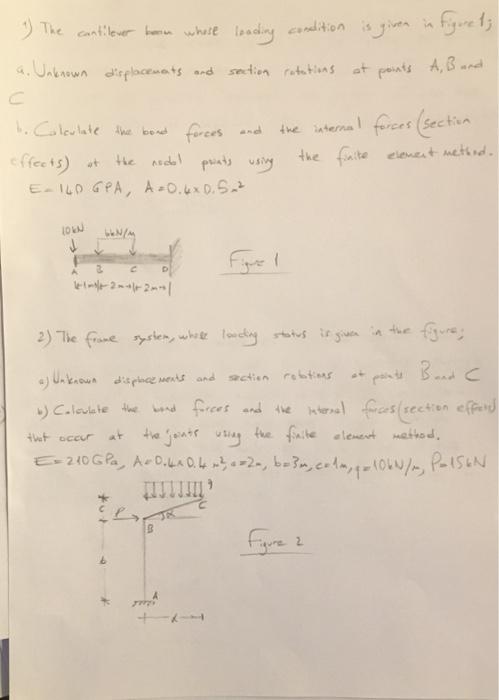 1) The cantilever beam whose loading condition is given in Figure 1;
a. Unknown displacements and section rotations at points A, B and
C
b. Calculate the bond forces and the internal forces (section
effects) at the nodal points using the finite element method.
E = 140 GPA, A = 0.4x0.5 m²
10 kN 6kN/m
A B C D
1m 2m 2m
Figure 1
2) The frame system, whose loading status is given in the figure;
a) Unknown displacements and section rotations at points B and C
b) Calculate the bond forces and the internal forces (section effects)
that occur at the joints using the finite element method.
E = 210 GPa, A = 0.4x0.4 m², a=2m, b=3m, c=1m, q=10kN/m, P=15kN
q
c P C
B
b
A
Figure 2